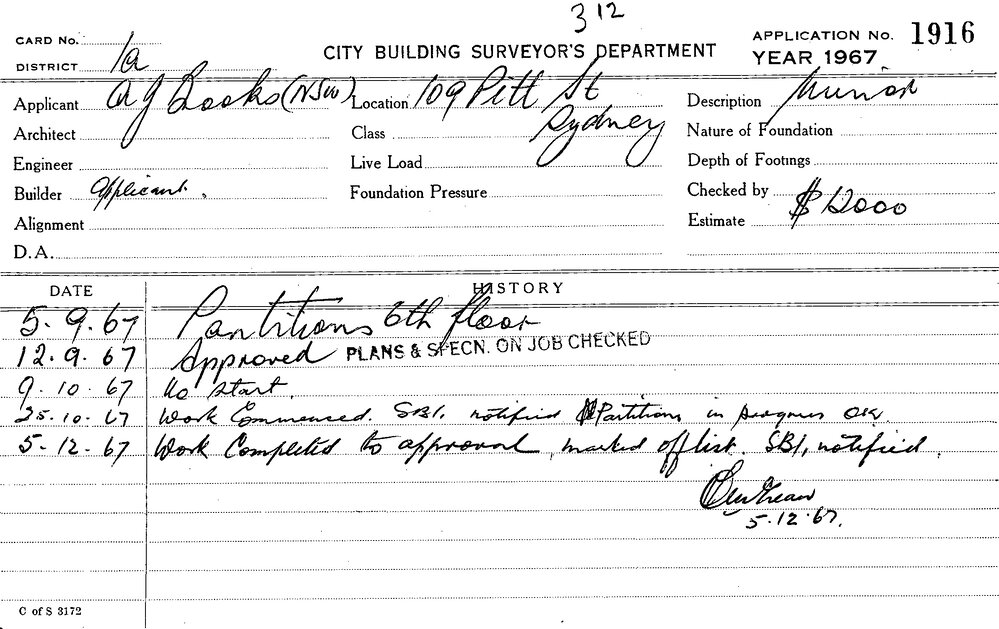 312
CARD No.
CITY BUILDING SURVEYOR'S DEPARTMENT
APPLICATION No. 1916
YEAR 1967.
DISTRICT 1a
Applicant A J Books (NSW) Location 109 Pitt St Sydney
Description Minor
Architect
Class
Nature of Foundation
Engineer
Live Load
Depth of Footings
Builder Applicant.
Foundation Pressure
Checked by
Alignment
Estimate $12000
D.A.
DATE HISTORY
5.9.67 Partitions 6th floor
12.9.67 Approved PLANS & SPECN. ON JOB CHECKED
9.10.67 No start.
25.10.67 Work Commenced. SBI. notified Partitions in progress OK
5.12.67 Work Completed to approval, marked off list. SBI, notified.
5.12.67.
C of S 3172